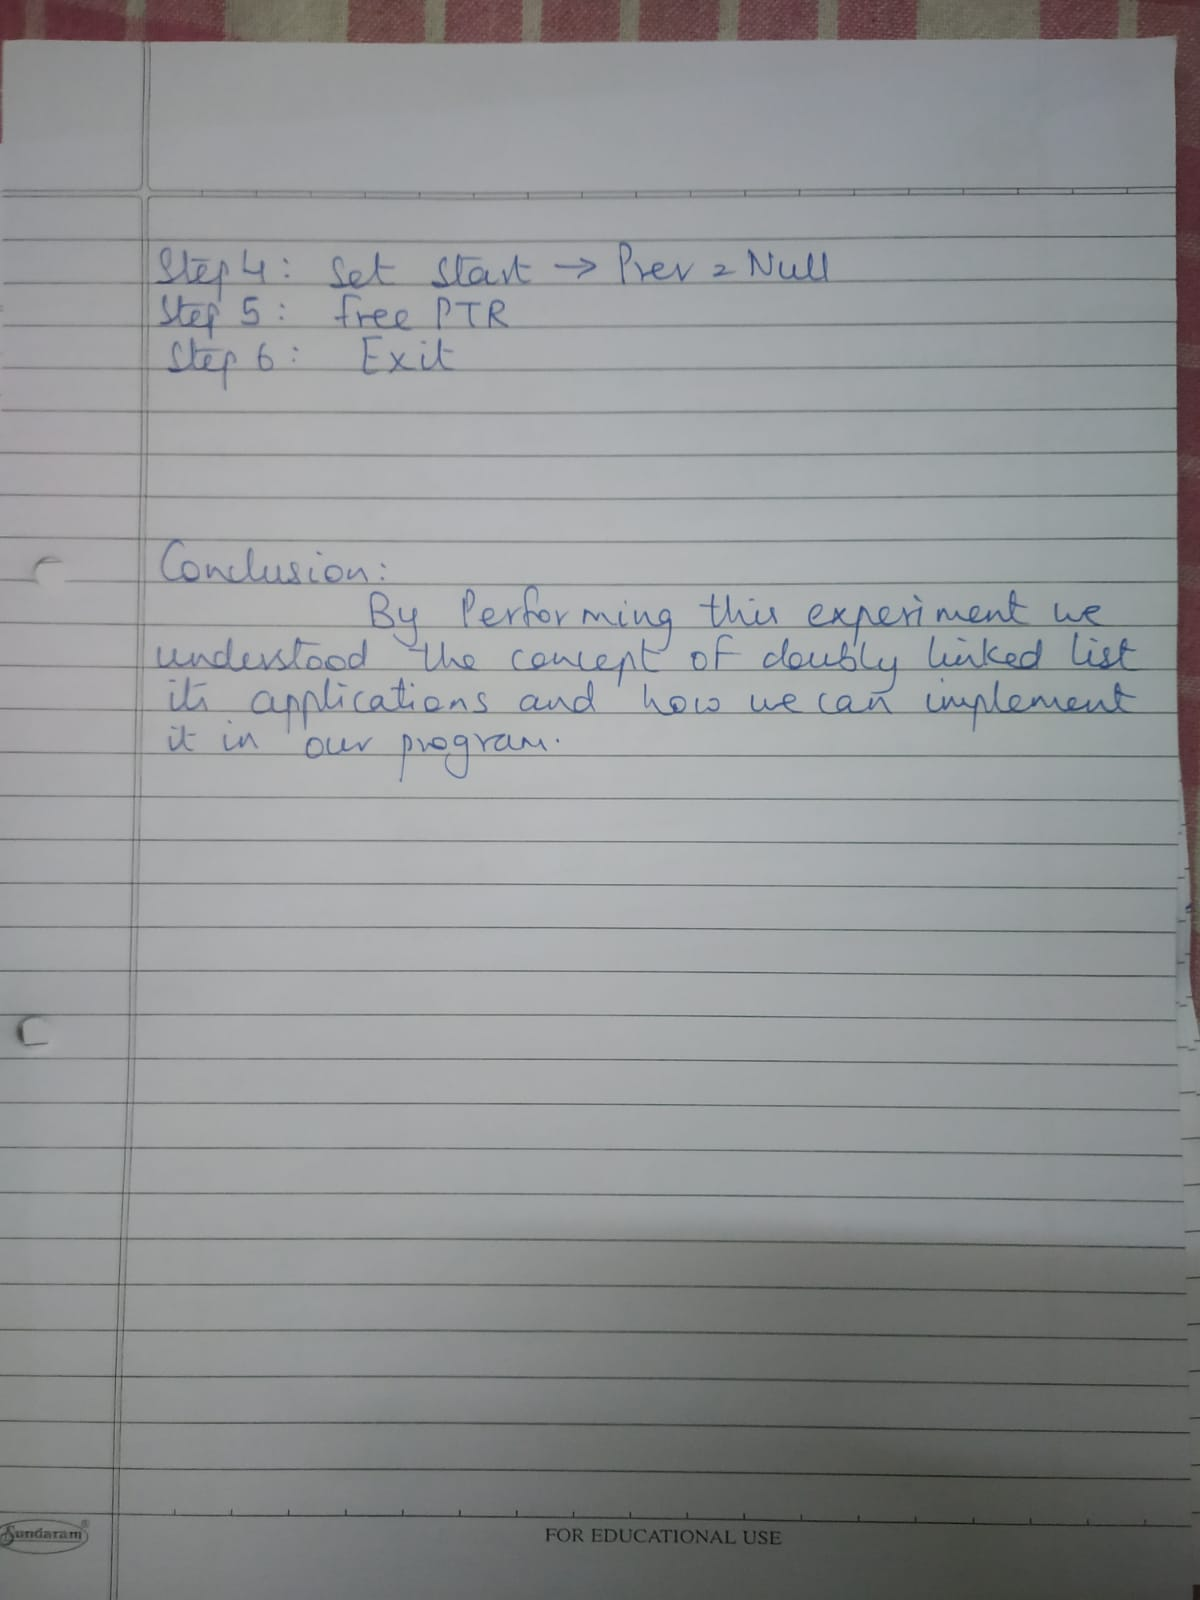 Step 4: Set Start → Prev = Null
Step 5: free PTR
Step 6: Exit
Conclusion:
By Performing this experiment we
understood the concept of doubly linked list
its applications and how we can implement
it in our program.
Sundaram®
FOR EDUCATIONAL USE